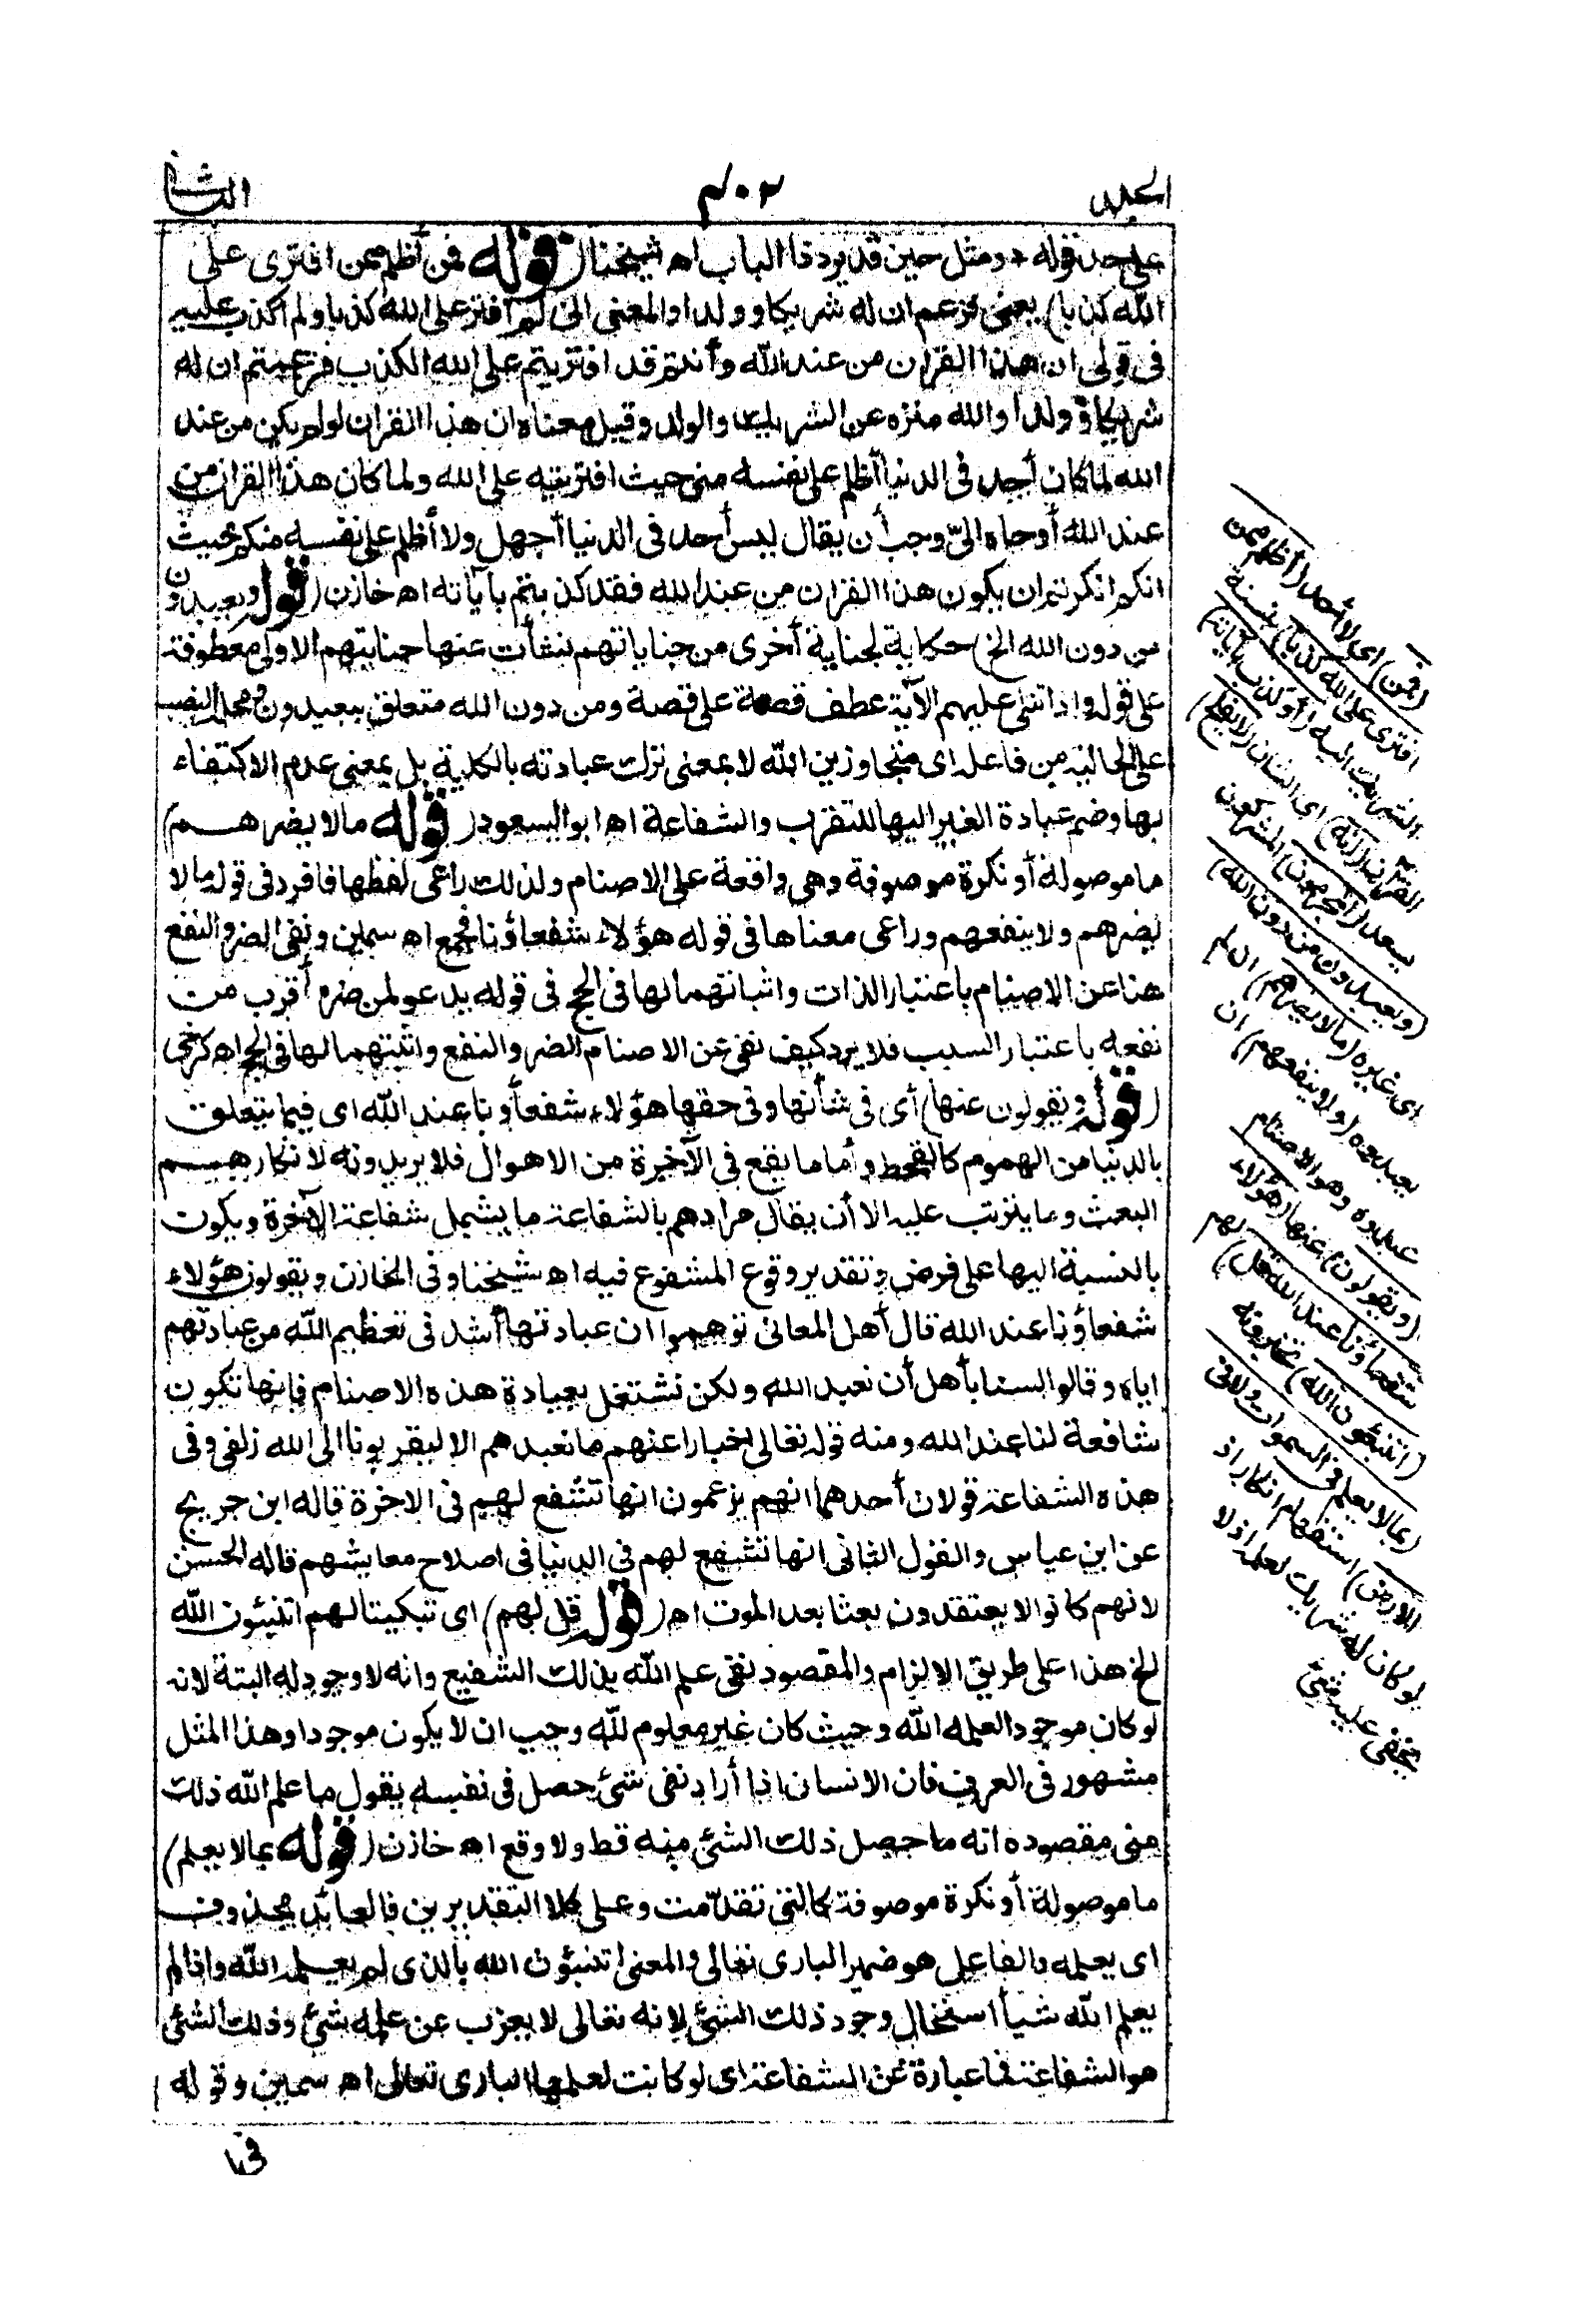 الجلد
٤٠٢
الثانى
على حد قوله * ومثل حين قد يرد ذا الباب اه شيخنا (قوله فمن أظلم ممن افترى على
الله كذبا) يعنى فزعم ان له شريكا وولدا والمعنى انى لم أفتر على الله كذبا ولم اكذب عليه
فى قولى ان هذا القرآن من عند الله وأنتم قد افتريتم على الله الكذب فزعمتم ان له
شريكا وولدا والله منزه عن الشريك والولد وقيل معناه ان هذا القرآن لو لم يكن من عند
الله لما كان أحد فى الدنيا أظلم على نفسه منى حيث افتريته على الله ولما كان هذا القرآن من
عند الله أوحاه الىّ وجب أن يقال ليس أحد فى الدنيا أجهل ولا أظلم على نفسه منكم حيث
انكم انكرتم ان يكون هذا القرآن من عند الله فقد كذبتم بآياته اه خازن (قوله ويعبدون
من دون الله الخ) حكاية لجناية أخرى من جناياتهم نشأت عنها جنايتهم الاولى معطوفة
على قوله واذا تتلى عليهم الآية عطف قصة على قصة ومن دون الله متعلق بيعبدون ومحله النصب
على الحالية من فاعله اى متجاوزين الله لا بمعنى ترك عبادته بالكلية بل بمعنى عدم الاكتفاء
بها وضم عبادة الغير اليها للتقرب والشفاعة اه ابو السعود (قوله ما لا يضرهم)
ما موصولة أو نكرة موصوفة وهى واقعة على الاصنام ولذلك راعى لفظها فافرد فى قوله ما لا
يضرهم ولا ينفعهم وراعى معناها فى قوله هؤلاء شفعاؤنا فجمع اه سمين ونفى الضر والنفع
هنا عن الاصنام باعتبار الذات واثباتهما لها فى الحج فى قوله يدعو لمن ضره أقرب من
نفعه باعتبار السبب فلا يرد كيف نفى عن الاصنام الضر والنفع واثبتهما لها فى الحج اه كرخى
(قوله ويقولون عنها) أى فى شأنها وفى حقها هؤلاء شفعاؤنا عند الله اى فيما يتعلق
بالدنيا من الهموم كالقحط وأما ما يقع فى الآخرة من الاهوال فلا يريدونه لانكارهم
البعث وما يترتب عليه الا أن يقال مرادهم بالشفاعة ما يشمل شفاعة الآخرة ويكون
بالنسبة اليها على فرض وتقدير وقوع المشفوع فيه اه شيخنا وفى الخازن ويقولون هؤلاء
شفعاؤنا عند الله قال أهل المعانى توهموا ان عبادتها أشد فى تعظيم الله من عبادتهم
اياه وقالوا لسنا بأهل أن نعبد الله ولكن نشتغل بعبادة هذه الاصنام فانها تكون
شافعة لنا عند الله ومنه قوله تعالى اخبارا عنهم ما نعبدهم الا ليقربونا الى الله زلفى وفى
هذه الشفاعة قولان أحدهما انهم يزعمون انها تشفع لهم فى الاخرة قاله ابن جريج
عن ابن عباس والقول الثانى انها تشفع لهم فى الدنيا فى اصلاح معايشهم قاله الحسن
لانهم كانوا لا يعتقدون بعثا بعد الموت اه (قوله قل لهم) اى تبكيتا لهم اتنبئون الله
الخ هذا على طريق الالزام والمقصود نفى علم الله بذلك الشفيع وانه لا وجود له البتة لانه
لو كان موجودا لعلمه الله وحيث كان غير معلوم لله وجب ان لا يكون موجودا وهذا المثل
مشهور فى العرف فان الانسان اذا أراد نفى شئ حصل فى نفسه يقول ما علم الله ذلك
منى مقصوده انه ما حصل ذلك الشئ منه قط ولا وقع اه خازن (قوله بما لا يعلم)
ما موصولة أو نكرة موصوفة كالتى تقدّمت وعلى كلا التقديرين فالعائد محذوف
اى يعلمه والفاعل هو ضمير البارى تعالى والمعنى اتنبؤن الله بالذى لم يعلمه الله واذا لم
يعلم الله شيأ استحال وجود ذلك الشئ لانه تعالى لا يعزب عن علمه شئ وذلك الشئ
هو الشفاعة فما عبارة عن الشفاعة اى لو كانت لعلمها البارى تعالى اه سمين وقوله
فى
(فمن) اى لا أحد (أظلم ممن
افترى على الله كذبا) بنسبة
الشريك اليه (أو كذب بآياته)
القرآن (انه) اى الشان (لا يفلح)
يسعد (المجرمون) المشركون
(ويعبدون من دون الله)
اى غيره (ما لا يضرهم) ان لم
يعبدوه (ولا ينفعهم) ان
عبدوه وهو الاصنام
(ويقولون) عنها (هؤلاء
شفعاؤنا عند الله قل) لهم
(اتنبئون الله) تخبرونه
(بما لا يعلم فى السموات ولا فى
الارض) استفهام انكار اذ
لو كان له شريك لعلمه اذ لا
يخفى عليه شئ